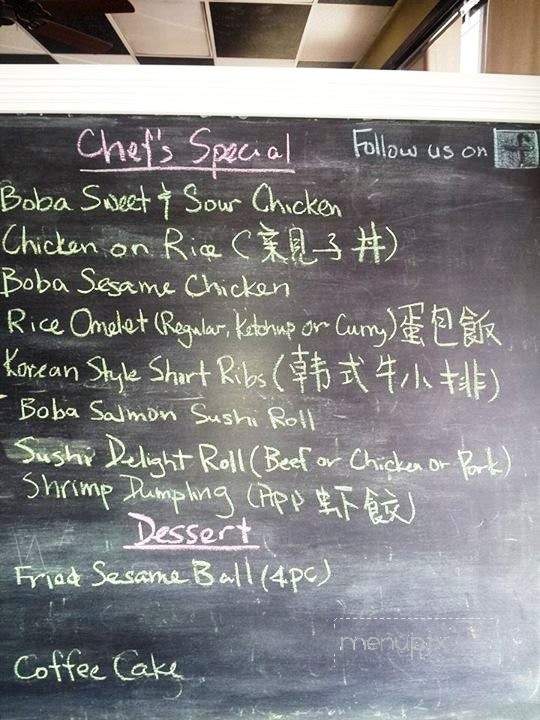 Chef's Special
Follow us on
Boba Sweet & Sour Chicken
Chicken on Rice (親子丼)
Boba Sesame Chicken
Rice Omelet (Regular, Ketchup or Curry) 蛋包飯
Korean Style Short Ribs (韩式牛小排)
Boba Salmon Sushi Roll
Sushi Delight Roll (Beef or Chicken or Pork)
Shrimp Dumpling (App 虾餃)
Dessert
Fried Sesame Ball (4pc)
menupix
Coffee Cake